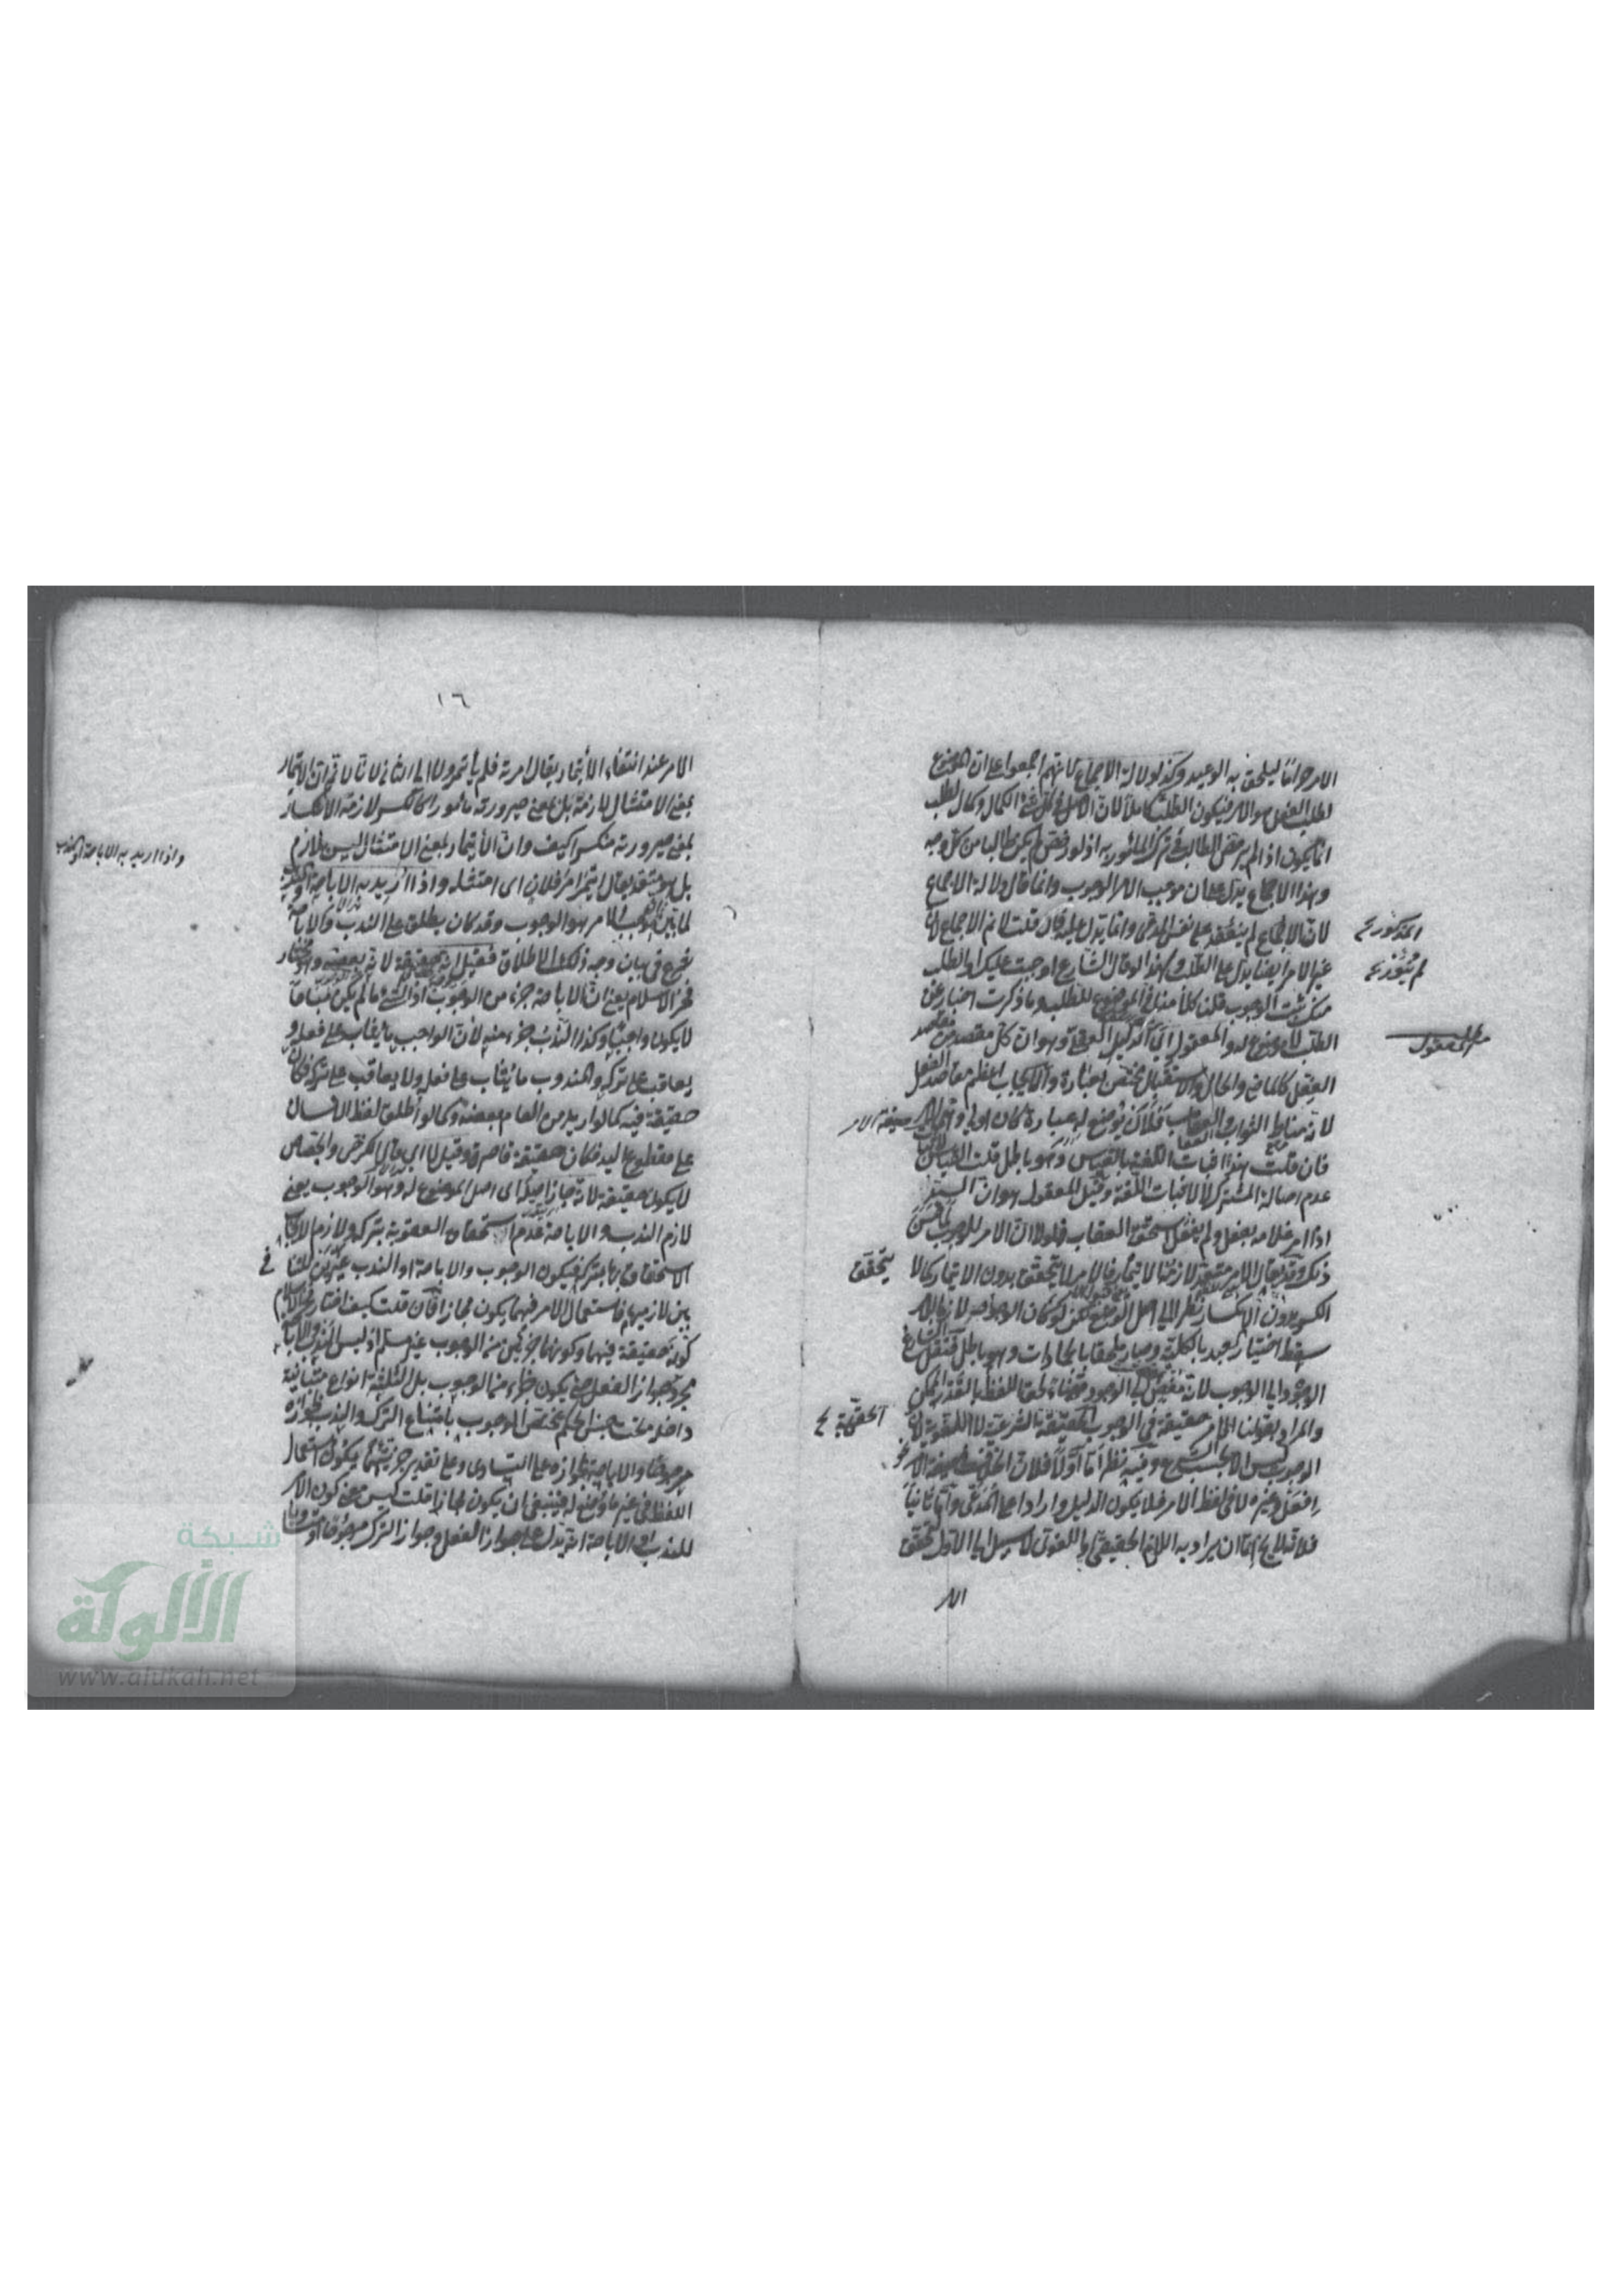 الامر حراما ليلحق به الوعيد وكذا دلالة الاجماع لانهم اجمعوا على ان الموضوع
لطلب الفعل هو الامر فيكون الطلب كاملا لان الاصل في كل شئ الكمال وكمال الطلب
انما يكون اذا لم يرخص الطالب في ترك المأمور به اذ لو رخص لم يكن طالبا من كل وجه
وهذا الاجماع يدل على ان موجب الامر الوجوب وانما قال دلالة الاجماع
لان الاجماع لم ينعقد على نفس المدعى وانما يدل عليه فان قلت لا نم الاجماع لان
المذكور
غير الامر ايضا يدل على الطلب ولهذا لو قال الشارع اوجبت عليك او اطلب
منك يثبت الوجوب قلنا كلامنا في الموضوع للطلب وما ذكرت اخبار عن
الطلب لا موضوع له والمعقول اي الدليل العقلي وهو ان كل مقصد من مقاصد
المعقول
الفعل كالماضي والحال والاستقبال مختص بعبارة والايجاب اعظم مقاصد الفعل
لانه مناط الثواب والعقاب فلأن يوضع له عبارة كان اولى وهي
صيغة الامر
فان قلت هذا اثبات اللغة بالقياس وهو باطل قلت القياس
عدم اصالة المشترك لا لاثبات اللغة وقيل المعقول هو ان السيد
اذا امر غلامه بفعل ولم يفعل استحق العقاب فلولا ان الامر للوجوب لما حسن
ذلك وقد يقال الامر متعد لازمه الايتمار فالامر لا يتحقق بدون الايتمار كما لا
يتحقق
الكسر بدون الانكسار نظرا الى اصل الوضع لكن لو كان الوجود لازما للامر
سقط اختيار العبد بالكلية وصار ملحقا بالجمادات وهو باطل فنقل الشارع
الوجود الى الوجوب لانه مفض الى الوجود
والمراد بقولنا الامر حقيقة في الوجوب الحقيقة الشرعية لا اللغوية لان
الحقيقة
الوجوب ليس الا بالشرع وفيه نظر اما اولا فلان الخلاف في صيغة الامر نحو
افعل وغيره لا في لفظ الامر فلا يكون الدليل واردا على المدعى واما ثانيا
فلانه لا يخ اما ان يراد به اللازم الحقيقي او اللغوي لا سبيل الى الاول لتحقق
الامر
١٦
الامر عند انتفاء الايتمار يقال امرته فلم يأتمر ولا الى الثاني لانا لا نم ان الايتمار
بمعنى الامتثال لازمه بل بمعنى صيرورته مأمورا كالكسر لازمه الانكسار
بمعنى صيرورته منكسرا كيف وان الايتمار بمعنى الامتثال ليس بلازم
بل هو متعد يقال ائتمر امر فلان اى امتثله واذا اريد به الاباحة او الندب
واذا اريد به الاباحة او الندب
لما بين ان موجب الامر هو الوجوب وقد كان يطلق على الندب والاباحة
شرع في بيان وجه ذلك الاطلاق فقيل انه حقيقة لانه بعضه وهو مختار
فخر الاسلام يعني ان الاباحة جزء من الوجوب اذ الشئ ما لم يكن مباحا
لا يكون واجبا وكذا الندب جزء منه لان الواجب ما يثاب على فعله و
يعاقب على تركه والمندوب ما يثاب على فعله ولا يعاقب على تركه فكان
حقيقة فيه كما لو اريد من العام بعضه وكما لو اطلق لفظ الانسان
على مقطوع اليد فكان حقيقة قاصرة وقيل لا اى قال الكرخي والجصاص
لا يكون حقيقة لانه جاز اصله اى اصل الموضوع له وهو الوجوب يعني
لازم الندب والاباحة عدم استحقاق العقوبة بتركه ولازم الايجاب
الاستحقاق بها بتركه فيكون الوجوب والاباحة او الندب غيرين للتنافي
بين لازميهما فاستعمال الامر فيهما يكون مجازا فان قلت كيف اختار فخر الاسلام
كونه حقيقة فيهما وكونهما جزئين من الوجوب غير مسلم اذ ليس الندب والاباحة
مجرد جواز الفعل حتى يكون جزءا من الوجوب بل الثلثة انواع متباينة
داخلة تحت جنس الحكم مختص الوجوب بامتناع الترك والندب بجوازه
مرجوحا والاباحة بجوازه على التساوى وعلى تقدير جزئيتهما يكون استعمال
اللفظ في غير ما وضع له فينبغي ان يكون مجازا قلت ليس معنى كون الامر
للندب او الاباحة انه يدل على جواز الفعل وجواز الترك مرجوحا او متساويا
شبكة
الألوكة
www.alukah.net